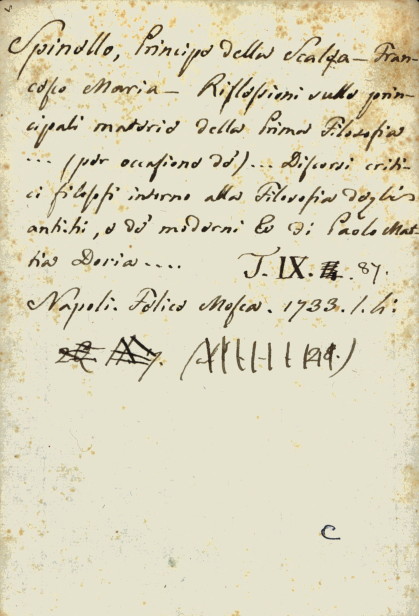 Spinello, Principe della Scalea - Fran-
cesco Maria - Riflessioni sulle prin-
cipali materie della Prima Filosofia
... (per occasione de') ... Discorsi criti-
ci filosofi intorno alla Filosofia degli
antichi, e de' moderni &c di Paolo Mat-
tia Doria....
T. IX. 87.
Napoli. Felice Mosca. 1733. 1. 4:
C